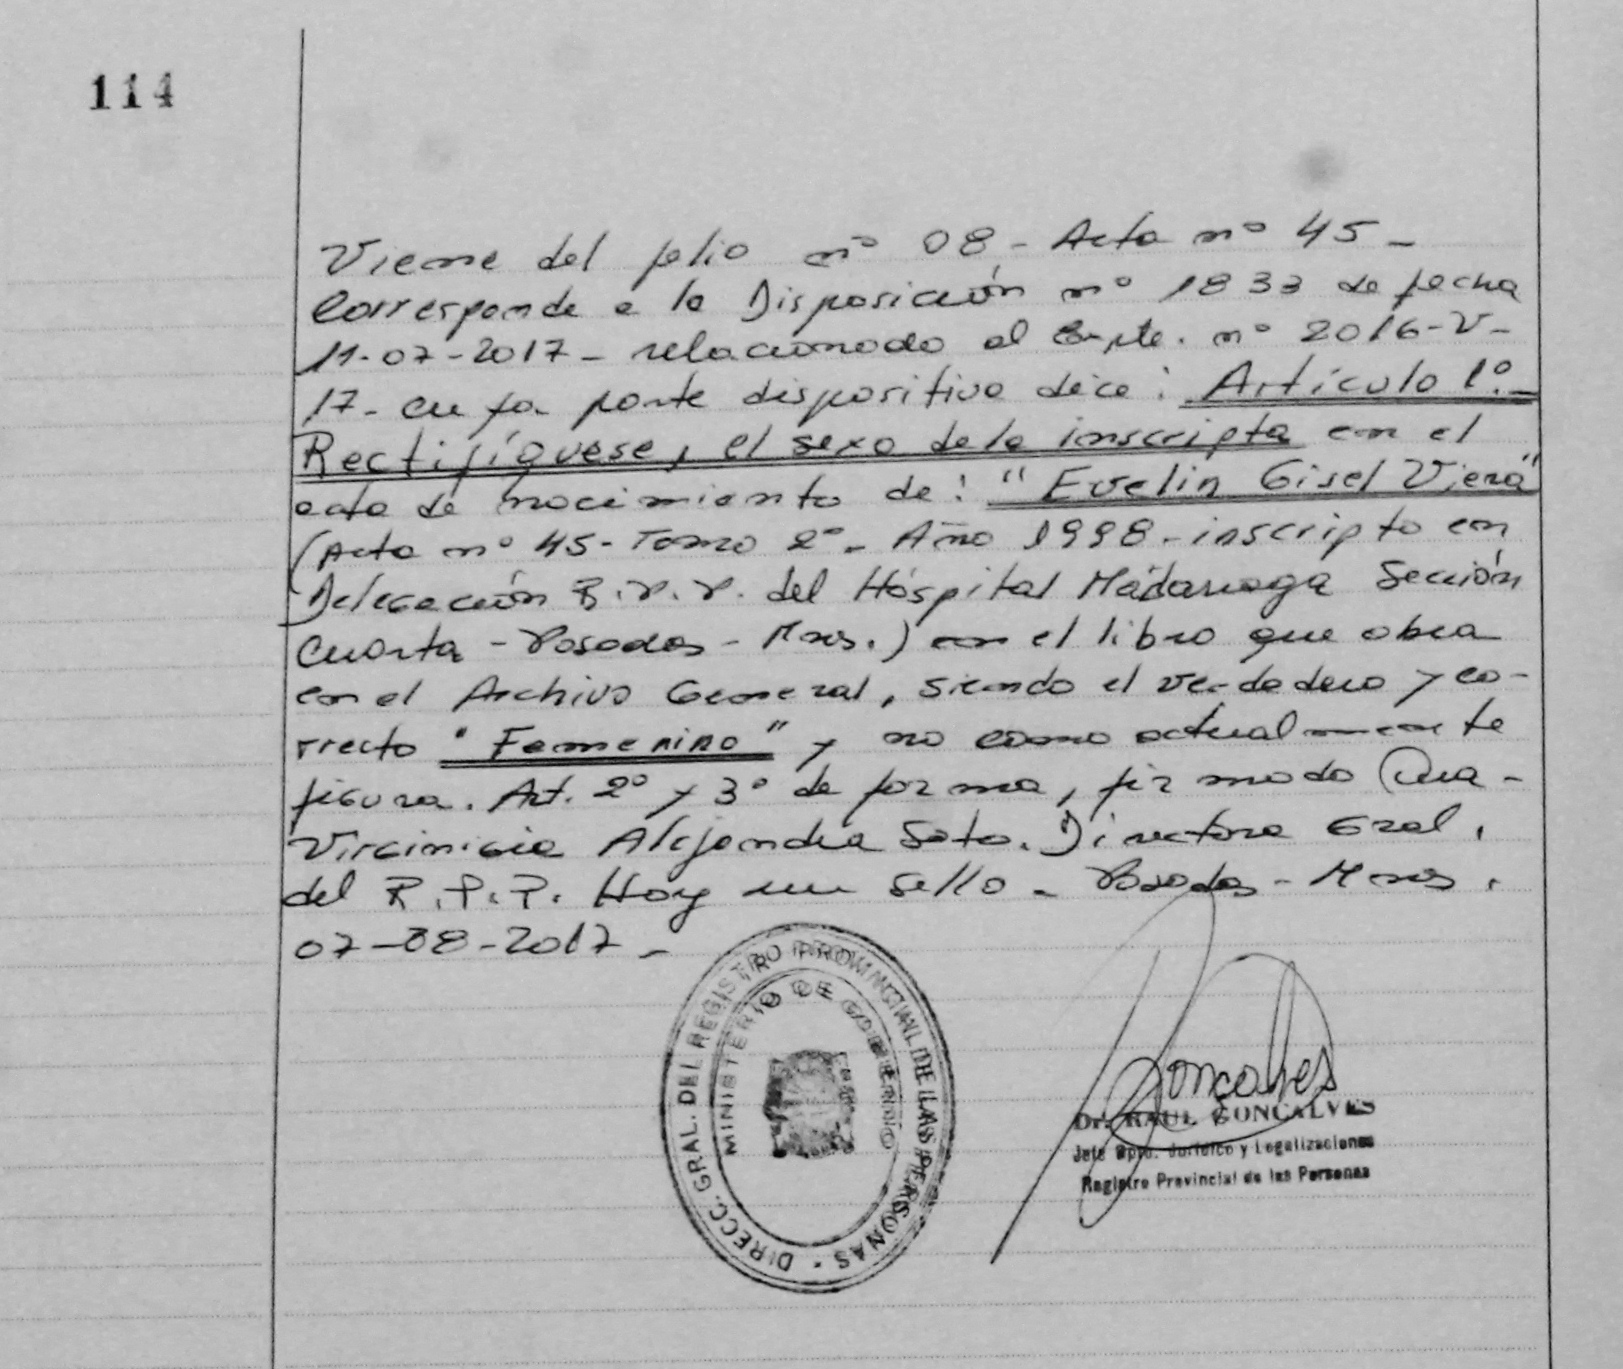 114
Viene del folio nº 08 - Acta nº 45 -
Corresponde a la Disposición nº 1833 de fecha
11-07-2017 - relacionado al Expte. nº 2016-V-
17- cuya parte dispositiva dice: Artículo 1º.-
Rectifíquese, el sexo de la inscripta en el
acta de nacimiento de: "Evelin Gisel Viera"
(Acta nº 45- Tomo 2º- Año 1998- inscripto en
Delegación R.P.P. del Hospital Madariaga Sección
Cuarta - Posadas - Mnes.) en el libro que obra
en el Archivo General, siendo el verdadero y co-
rrecto "Femenino" y no como actualmente
figura. Art. 2º y 3º de forma, firmado Dra-
Virginia Alejandra Soto. Directora Gral.
del R.P.P. Hay un sello - Posadas - Mnes.
07-08-2017 -
DIRECC. GRAL. DEL REGISTRO PROVINCIAL DE LAS PERSONAS
MINISTERIO DE GOBIERNO
Goncalves
Dr. RAUL GONCALVES
Jefe Dpto. Jurídico y Legalizaciones
Registro Provincial de las Personas